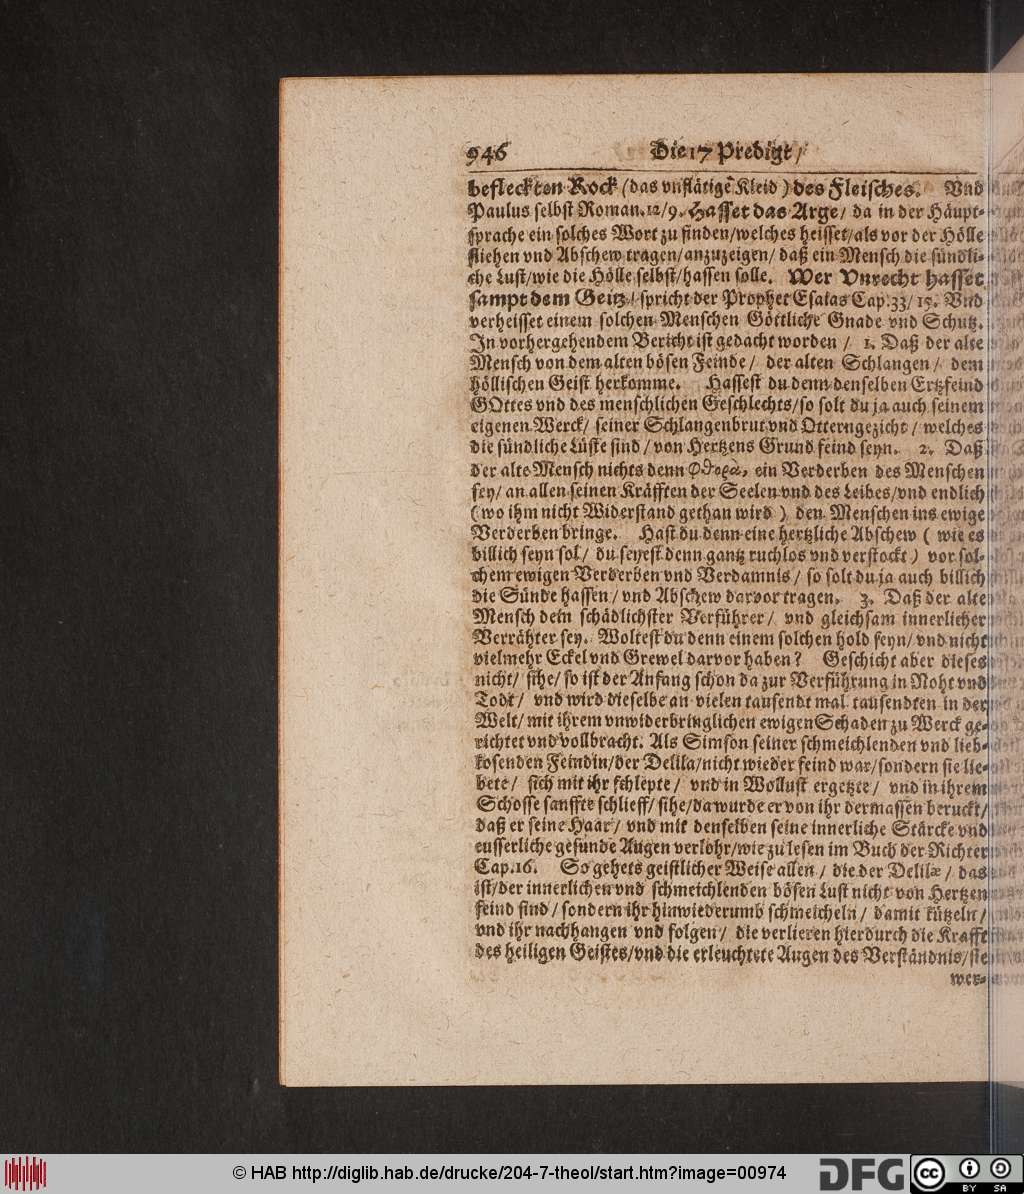 946 Die 17 Predigt /
befleckten Rock (das vnflätige Kleid ) des Fleisches. Vnd
Paulus selbst Roman. 12/9. Hasset das Arge/ da in der Häupt-
sprache ein solches Wort zu finden/welches heisset/als vor der Hölle
fliehen vnd Abschew tragen/anzuzeigen/ daß ein Mensch die sündli-
che Lust/wie die Hölle selbst/hassen solle. Wer Vnrecht hasset
sampt dem Geitz/ spricht der Prophet Esaias Cap. 33/ 15. Vnd
verheisset einem solchen Menschen Göttliche Gnade vnd Schutz.
In vorhergehendem Bericht ist gedacht worden / 1. Daß der alte
Mensch von dem alten bösen Feinde / der alten Schlangen / dem
höllischen Geist herkomme. Hassest du denn denselben Ertzfeind
GOttes vnd des menschlichen Geschlechts/so solt du ja auch seinem
eigenen Werck/ seiner Schlangenbrut vnd Otterngezicht / welches
die sündliche Lüste sind / von Hertzens Grund feind seyn. 2. Daß
der alte Mensch nichts denn Φθορὰ, ein Verderben des Menschen
sey/ an allen seinen Kräfften der Seelen vnd des Leibes/vnd endlich
( wo ihm nicht Widerstand gethan wird ) den Menschen ins ewige
Verderben bringe. Hast du denn eine hertzliche Abschew ( wie es
billich seyn sol / du seyest denn gantz ruchlos vnd verstockt ) vor sol-
chem ewigen Verderben vnd Verdamnis / so solt du ja auch billich
die Sünde hassen / vnd Abschew darvor tragen. 3. Daß der alte
Mensch dein schädlichster Verführer / vnd gleichsam innerlicher
Verrähter sey. Woltest du denn einem solchen hold seyn/ vnd nicht
vielmehr Eckel vnd Grewel darvor haben? Geschicht aber dieses
nicht/ sihe/ so ist der Anfang schon da zur Verführung in Noht vnd
Todt / vnd wird dieselbe an vielen tausendt mal tausendten in der
Welt/ mit ihrem vnwiderbringlichen ewigen Schaden zu Werck ge-
richtet vnd vollbracht. Als Simson seiner schmeichlenden vnd lieb-
kosenden Feindin/der Delila/nicht wieder feind war/sondern sie lie-
bete / sich mit ihr schlepte / vnd in Wollust ergetzte / vnd in ihrem
Schosse sanffte schlieff/ sihe/da wurde er von ihr dermassen beruckt/
daß er seine Haar / vnd mit denselben seine innerliche Stärcke vnd
eusserliche gesunde Augen verlohr/wie zu lesen im Buch der Richter
Cap. 16. So gehets geistlicher Weise allen / die der Delilæ / das
ist/der innerlichen vnd schmeichlenden bösen Lust nicht von Hertzen
feind sind / sondern ihr hinwiederumb schmeicheln / damit kützeln /
vnd ihr nachhangen vnd folgen / die verlieren hierdurch die Krafft
des heiligen Geistes/vnd die erleuchtete Augen des Verständnis/ sie
wer-
© HAB http://diglib.hab.de/drucke/204-7-theol/start.htm?image=00974
DFG
cc BY SA